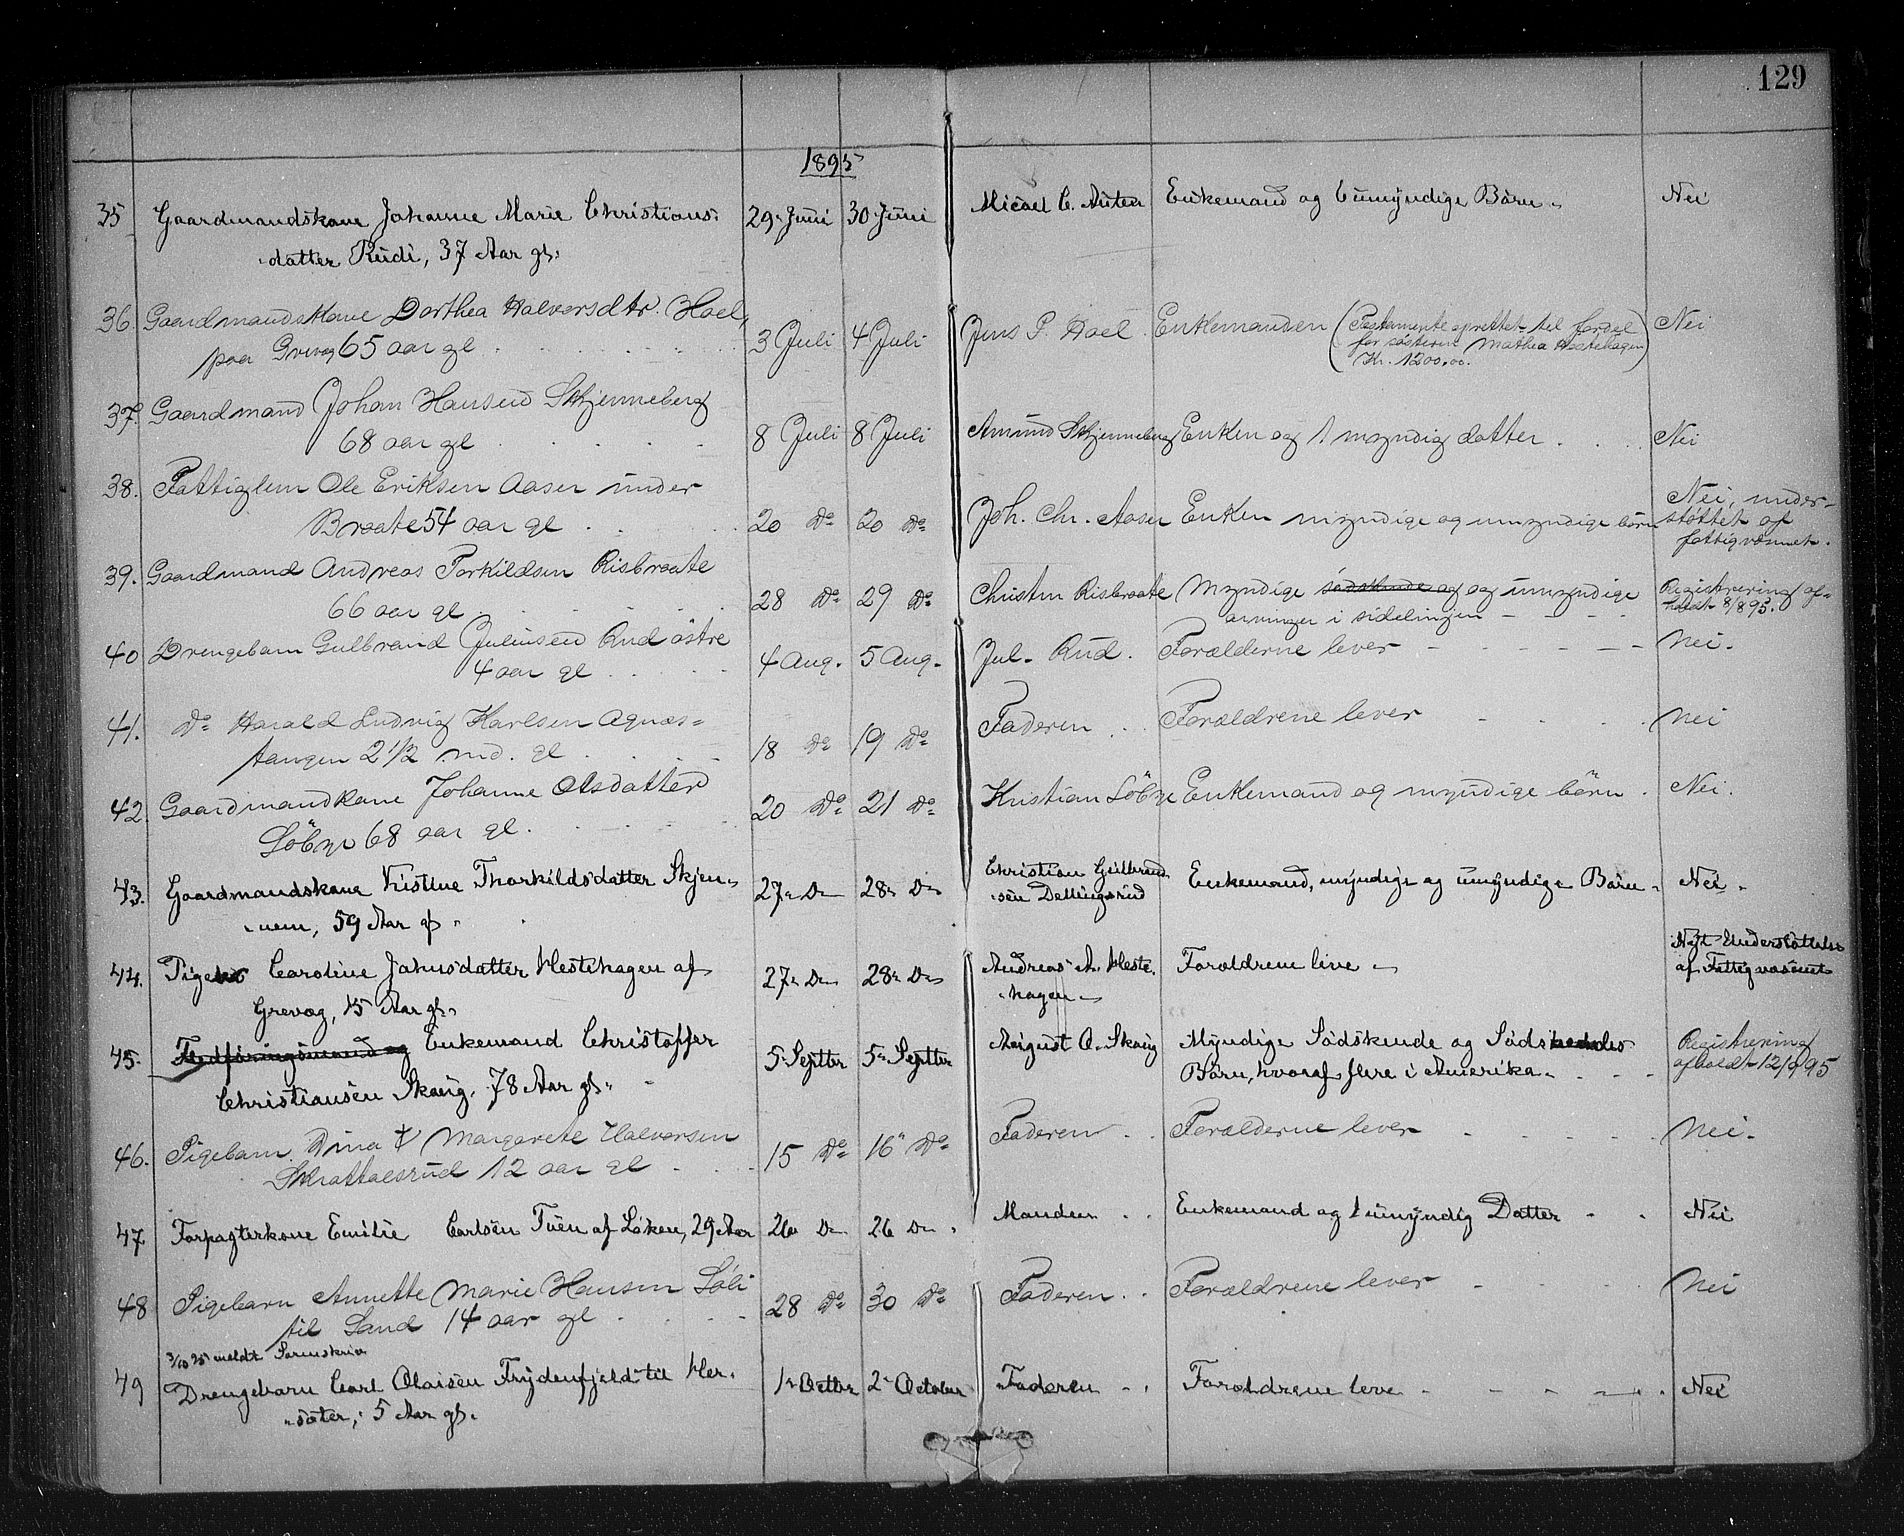 129
1895
35 Gaardmandskone Johanne Marie Christians- 29. Juni 30 Juni Micael C. Enkemand og 6 umyndige Börn. Nei
datter Rudi, 37 Aar gl:
36. Gaardmandskone Dorthea Halversdtr. Hoel, 3 Juli 4 Juli Jens P. Hoel. Enkemanden (Testamente oprettet til fordel Nei
paa Grevog 65 aar gl . . . . for søsteren Mathea Hestehagen
Kr. 1200,00.)
37. Gaardmand Johan Hansen Skjenneberg 8 Juli 8 Juli Amund Skjenneberg Enken og 1 myndig datter . . . Nei
68 aar gl . . . .
38. Fattiglem Ole Eriksen Aasen under 20 Do 20 Do Joh. Chr. Aasen Enken myndige og umyndige børn Nei, under-
Braate 54 aar gl . . . støttet af
fattigvæsnet.
39. Gaardmand Andreas Torkildsen Risbraate 28 Do 29 Do Christen Risbraate Myndige sødskende og og umyndige Registrering af-
66 aar gl . . . . arvinger i sidelinjen - - - holdt 8/8 95.
40 Drengebarn Gulbrand Juliusen Rud østre 4 Aug. 5 Aug. Jul. Rud. Forælderne lever - - - - Nei.
4 aar gl . . . .
41. Do Harald Ludvig Karlsen Agnæs- 18 Do 19 Do Faderen . . . Forældrene lever - . . . Nei
tangen 2 1/2 md. gl . . . .
42. Gaardmandkone Johanne Olsdatter 20 Do 21 Do Kristian Löbye Enkemand og myndige börn . Nei.
Löbye 68 aar gl . . . .
43. Gaardmandskone Kistine Thorkildsdatter Skjen- 27. D 28. D Christian Gulbrand- Enkemand, myndige og umyndige Börn - Nei.
nem, 59 Aar gl . sen Dellingsrud
44. Pige Caroline Jahnsdatter Hestehagen af 27. D 28. D Andreas A. Heste- Forældrene live - Nyt Understöttelse
Grevog, 15 Aar gl. hagen - af Fattigvæsenet
45. Fledföringsmand og Enkemand Christoffer 5. Septbr 5. Septbr August O. Skaug Myndige Södskende og Södskendes Registrering
Christiansen Skaug, 78 Aar gl. - Börn, hvoraf flere i Amerika. - - - afholdt 12/9 95
46. Pigebarn Dina Margarete Halversen 15 Do 16 Do Faderen . . Forælderne lever - . . . Nei.
Skrattalsrud 12 aar gl . . . .
47. Forpagterkone Emilie Carlsen Tuen af Löken, 29 Aar 26 D 26 D. Manden . . Enkemand og 1 umyndig Datter - . Nei
48 Pigebarn Annette Marie Hansen Löli 28 Do 30 Do Faderen . . Forældrene lever - . . . Nei
til Sand 14 aar gl . . . .
3/10 95 meldt Sorenskriv
49 Drengebarn Carl Olaisen Frydenfjeld til Her- 1. Octbr 2. October Faderen - . Forældrene leve - - - - . Nei
sæter, 5 Aar gl.